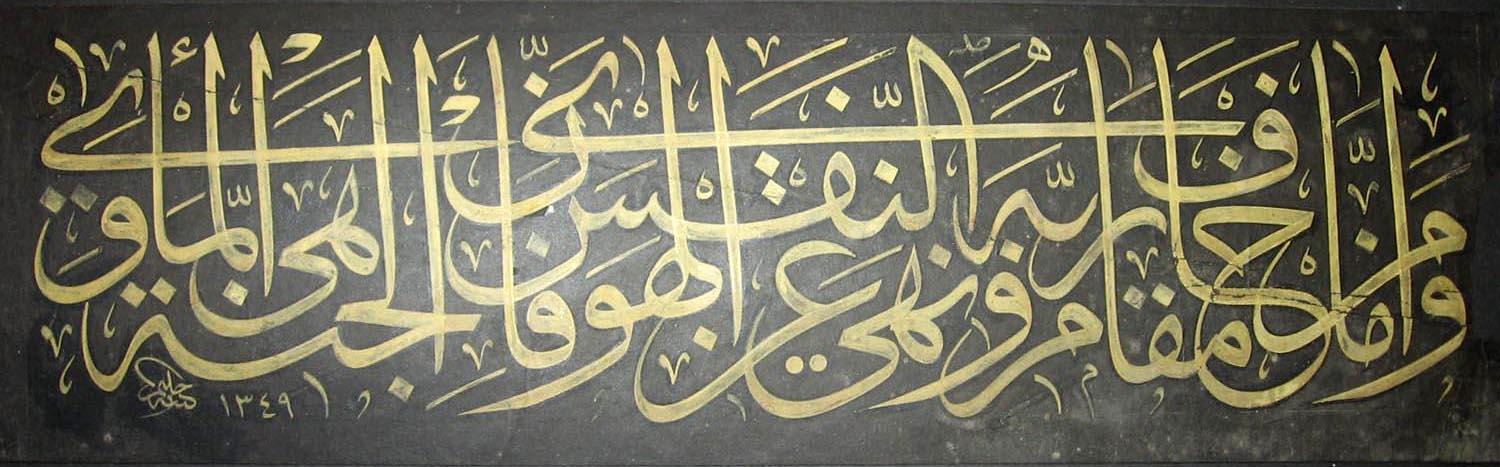 وَأَمَّا مَنْ خَافَ مَقَامَ رَبِّهِ وَنَهَى النَّفْسَ عَنِ الْهَوَىٰ فَإِنَّ الْجَنَّةَ هِيَ الْمَأْوَىٰ
١٣٤٩